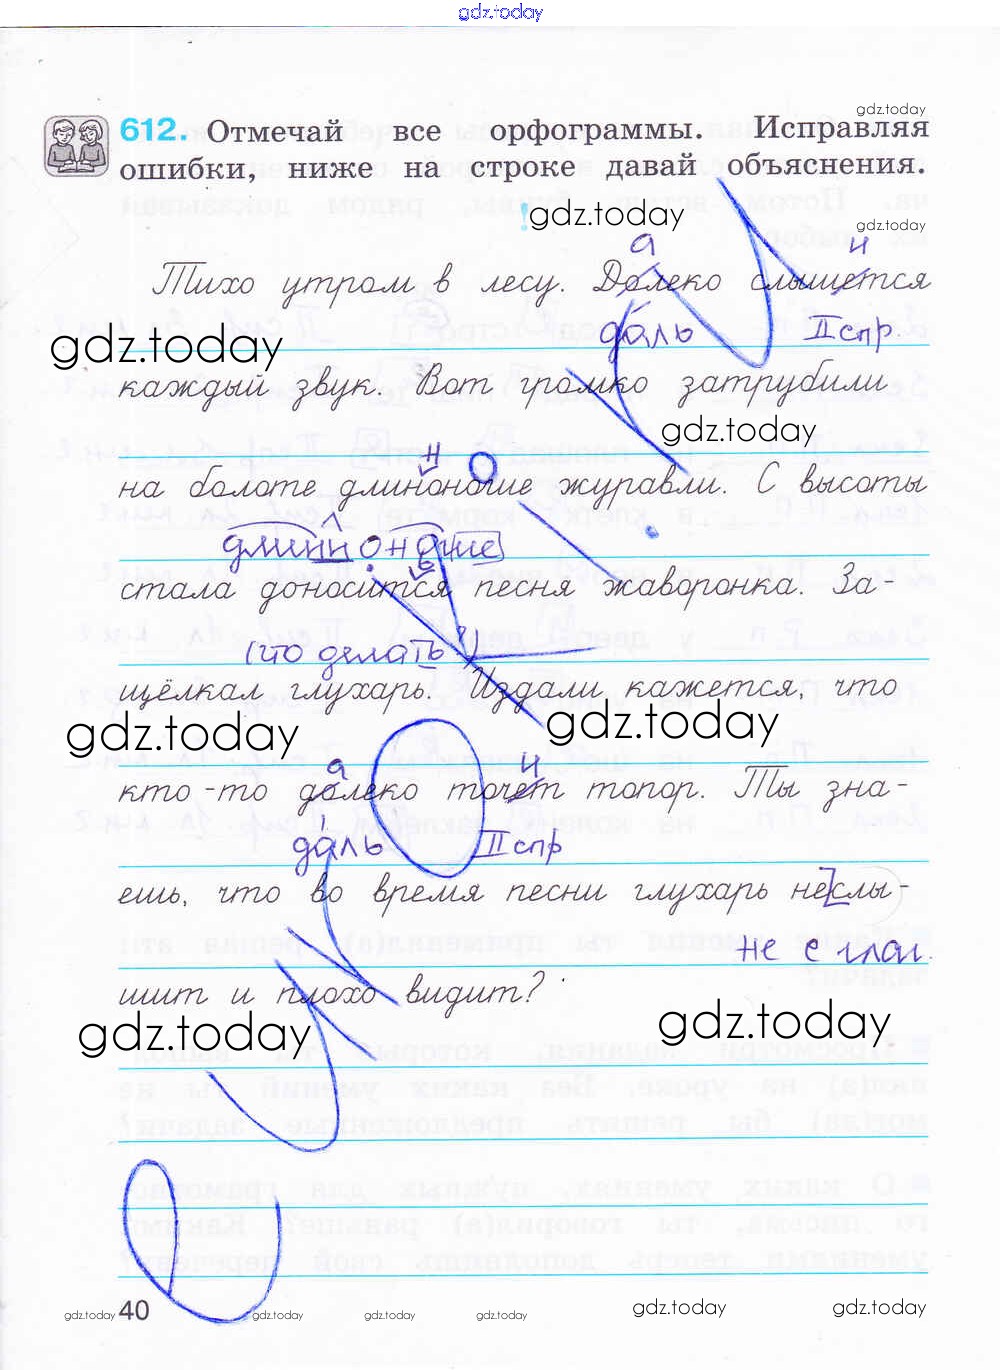 gdz.today
gdz.today
612. Отмечай все орфограммы. Исправляя
ошибки, ниже на строке давай объяснения.
! gdz.today
gdz.today
а и
Тихо утром в лесу. Долеко слышется
даль II спр.
gdz.today
каждый звук. Вот громко затрубили
gdz.today
н
на болоте длиноногие журавли. С высоты
длинноногие
ь
стала доносится песня жаворонка. За-
(что делать?)
щёлкал глухарь. Издали кажется, что
gdz.today gdz.today
а и
кто-то долеко точет топор. Ты зна-
даль II спр
ешь, что во время песни глухарь неслы-
не с глаг.
шит и плохо видит?
gdz.today gdz.today
gdz.today 40 gdz.today gdz.today gdz.today gdz.today gdz.today